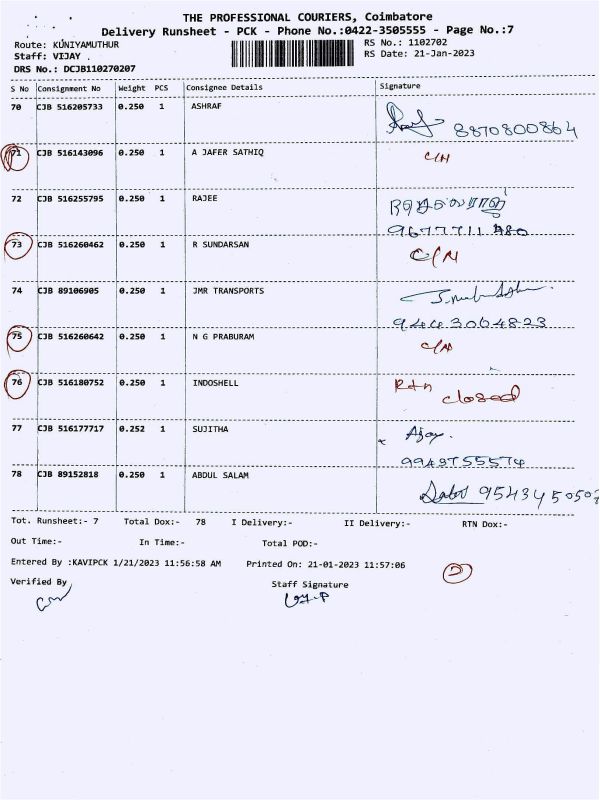 THE PROFESSIONAL COURIERS, Coimbatore
Delivery Runsheet - PCK - Phone No.:0422-3505555 - Page No.:7
Route: KUNIYAMUTHUR RS No.: 1102702
Staff: VIJAY . RS Date: 21-Jan-2023
DRS No.: DCJB110270207
S No Consignment No Weight PCS Consignee Details Signature
70 CJB 516205733 0.250 1 ASHRAF
8870800864
71 CJB 516143096 0.250 1 A JAFER SATHIQ C/N
72 CJB 516255795 0.250 1 RAJEE
73 CJB 516260462 0.250 1 R SUNDARSAN C/N
74 CJB 89106905 0.250 1 JMR TRANSPORTS
9443064823
75 CJB 516260642 0.250 1 N G PRABURAM C/N
76 CJB 516180752 0.250 1 INDOSHELL Rtn closed
77 CJB 516177717 0.252 1 SUJITHA Ajay.
78 CJB 89152818 0.250 1 ABDUL SALAM
Tot. Runsheet:- 7 Total Dox:- 78 I Delivery:- II Delivery:- RTN Dox:-
Out Time:- In Time:- Total POD:-
Entered By :KAVIPCK 1/21/2023 11:56:58 AM Printed On: 21-01-2023 11:57:06
Verified By Staff Signature